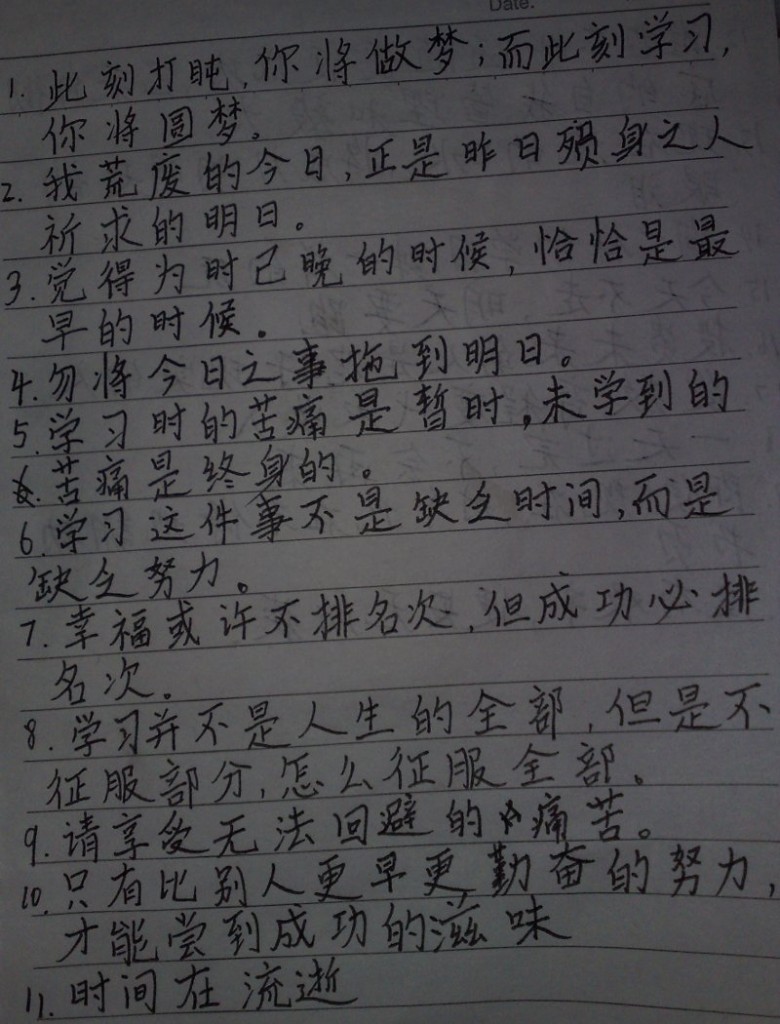 Date:
1. 此刻打盹,你将做梦;而此刻学习,
你将圆梦。
2. 我荒废的今日,正是昨日殒身之人
祈求的明日。
3. 觉得为时已晚的时候,恰恰是最
早的时候。
4. 勿将今日之事拖到明日。
5. 学习时的苦痛是暂时,未学到的
苦痛是终身的。
6. 学习这件事不是缺乏时间,而是
缺乏努力。
7. 幸福或许不排名次,但成功必排
名次。
8. 学习并不是人生的全部,但是不
征服部分,怎么征服全部。
9. 请享受无法回避的痛苦。
10. 只有比别人更早更勤奋的努力,
才能尝到成功的滋味
11. 时间在流逝